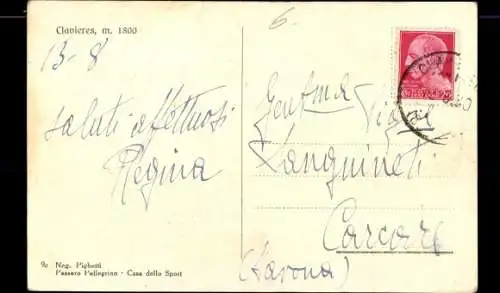 Clavieres, m. 1800
13-8
saluti affettuosi
Regina
Neg. Pighetti
Passero Pellegrino - Casa dello Sport
6
Gent.ma Sig.ne
Sanguineti
Carcare
(Savona)